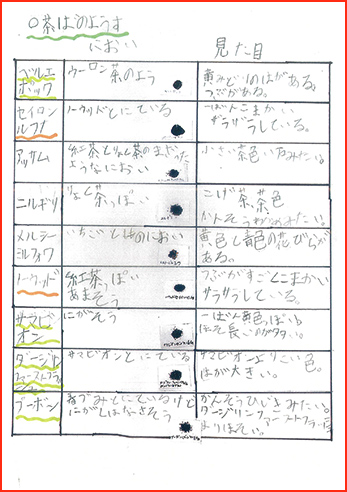 ○茶ばのようす
におい
見た目
ベルエ
ボック
ウーロン茶のよう
黄みどりのはがある。
つぶがある。
セイロン
ルフナ
ノーウッドとにている
一ばんこまかい
ザラザラしている。
アッサム
紅茶とりょく茶のまざった
ようなにおい
小さい茶色い
ニルギリ
りょく茶っぽい
こげ茶、茶色
かんそう
メルシー
ミルフォワ
いちごとももの におい
黄色と青色の花びらが
ある。
ノーウッド
紅茶っぽい
あまそう
つぶがすごくこまかい
サラサラしている。
サマビ
オン
にがそう
一ばん黄色っぽい
ほそ長い
ダージリン
ファーストフラッ
シュ
サマビオンとにている
サマビオンよりこい色。
はが大きい。
ブーボン
にているけど
にがくはなさそう
かんそうひじきみたい。
ダージリンファーストフラッシュ
よりほそい。